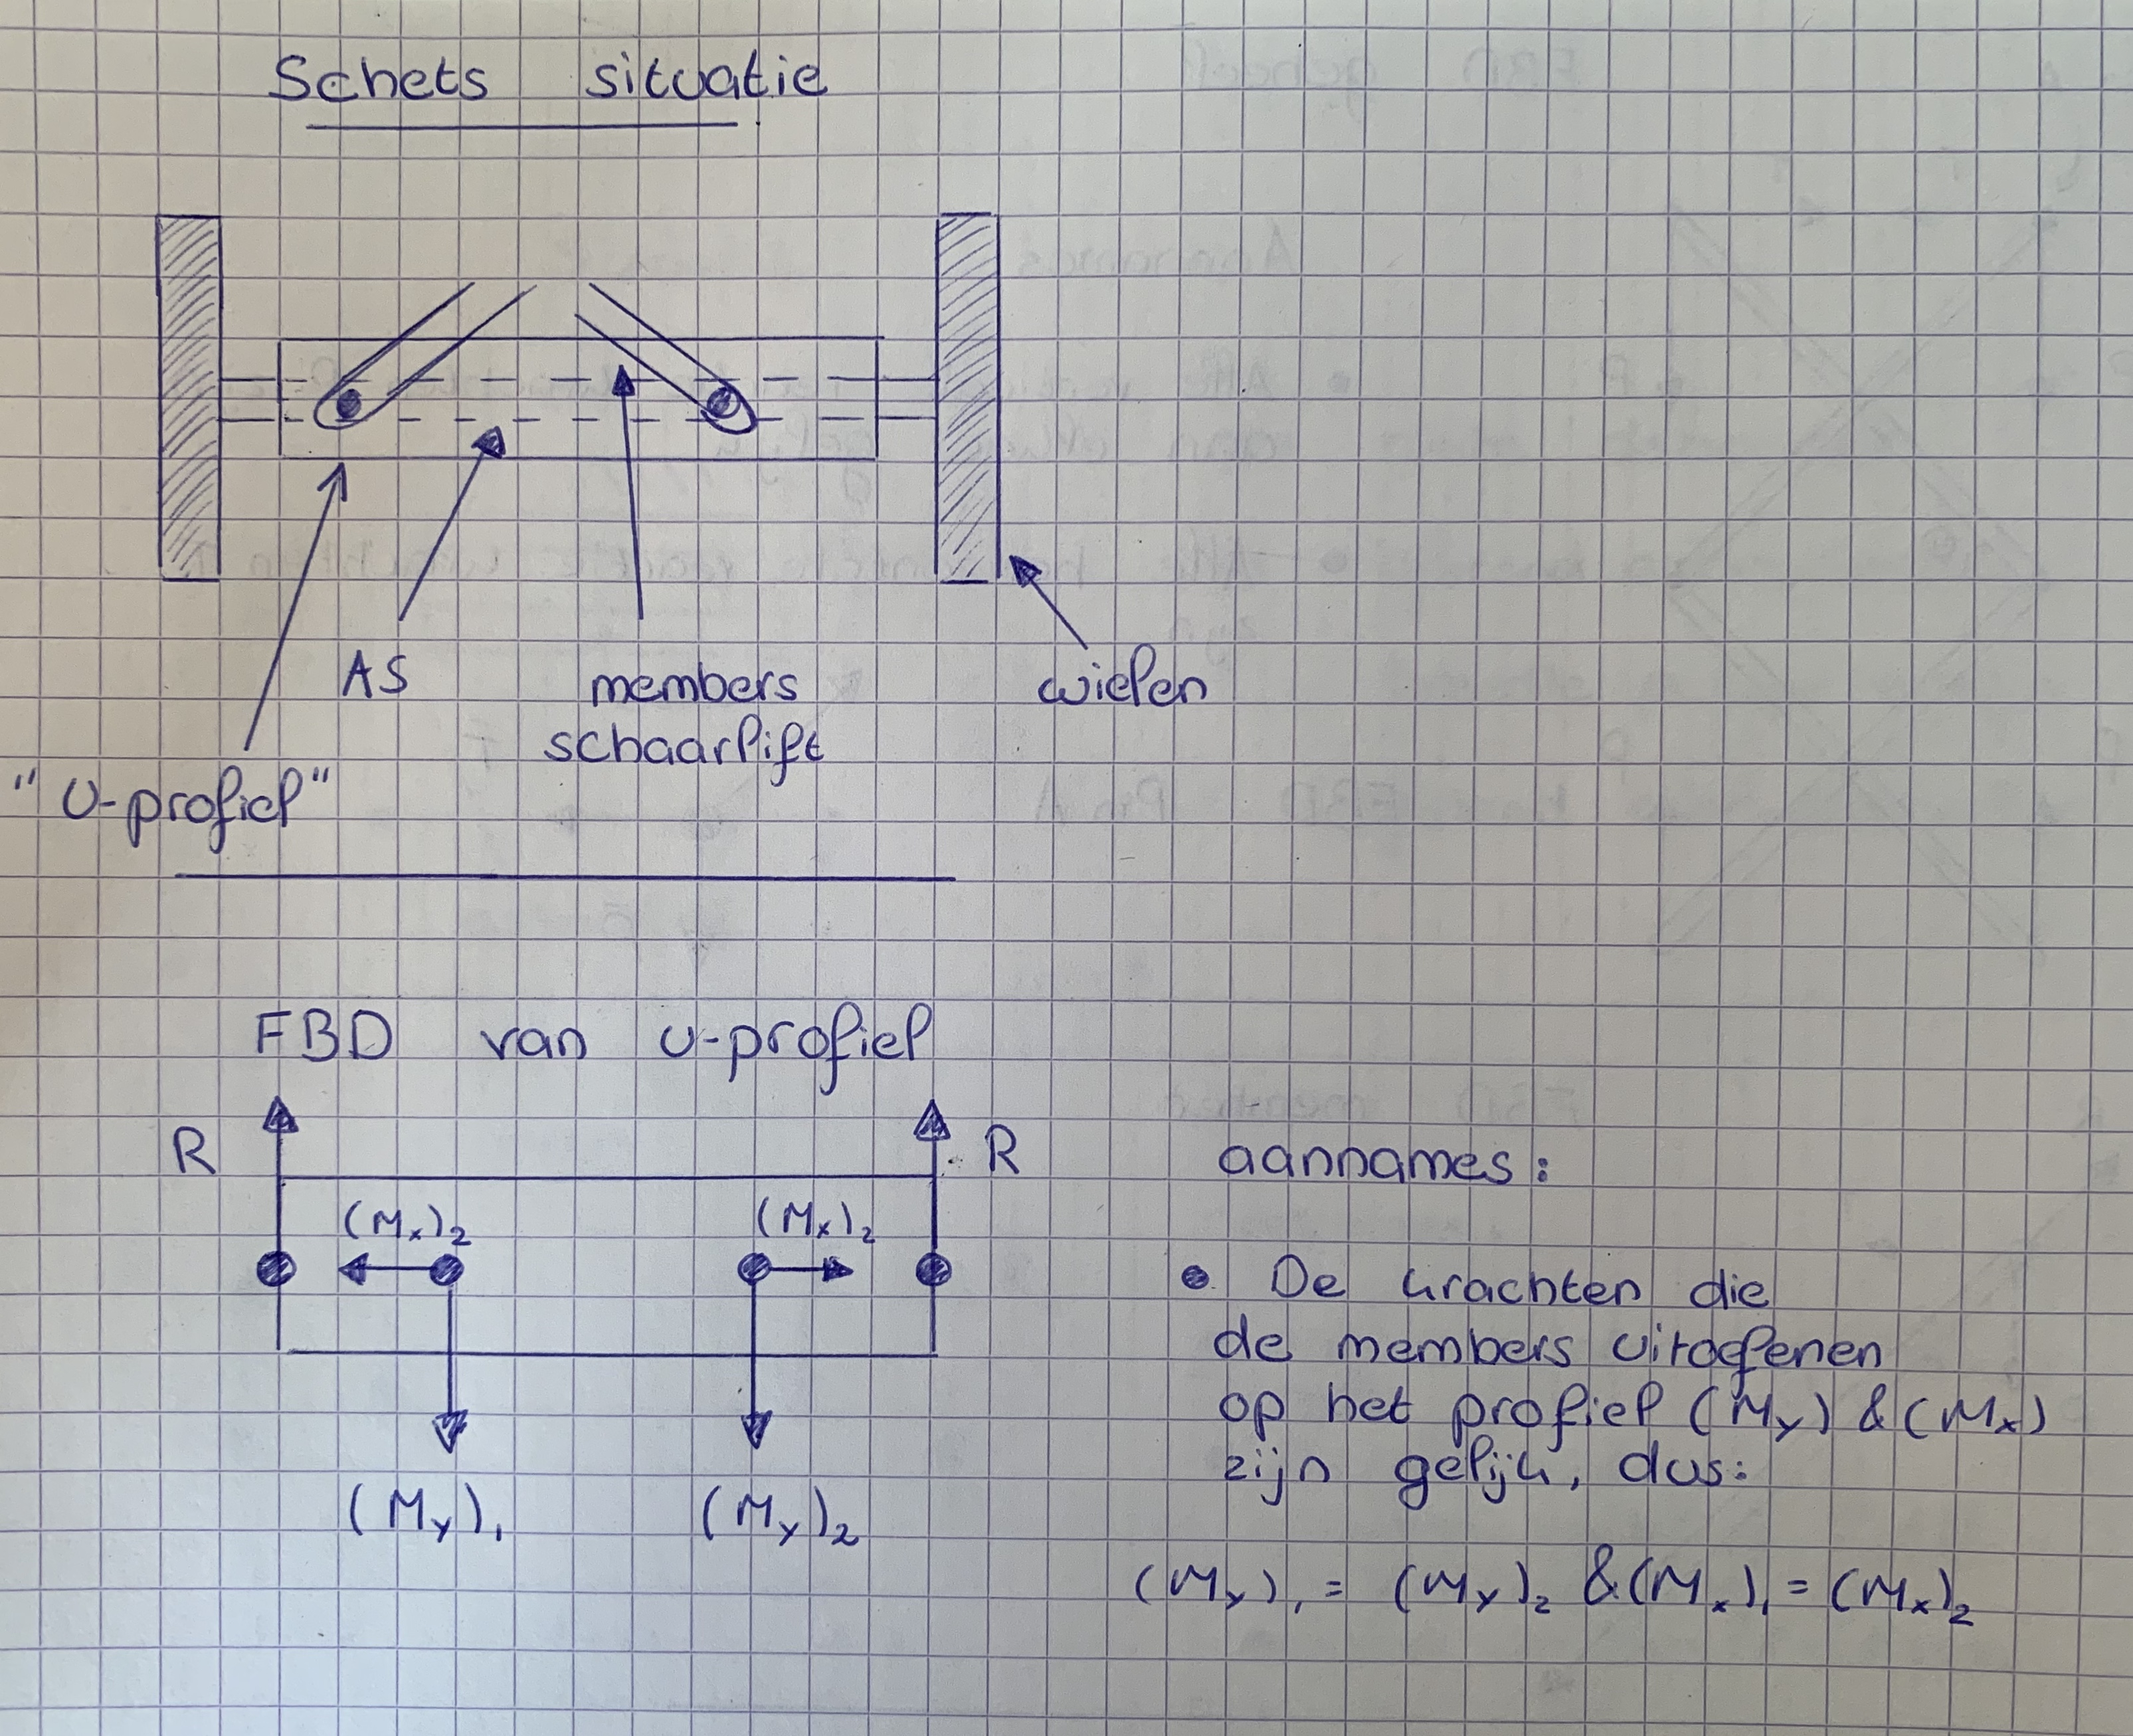 Schets situatie
AS
members
schaarlift
wielen
"U-profiel"
FBD van U-profiel
R
R
(Mx)2
(Mx)2
(My)1
(My)2
aannames:
• De krachten die
de members uitoefenen
op het profiel (My) & (Mx)
zijn gelijk, dus:
(My)1 = (My)2 & (Mx)1 = (Mx)2